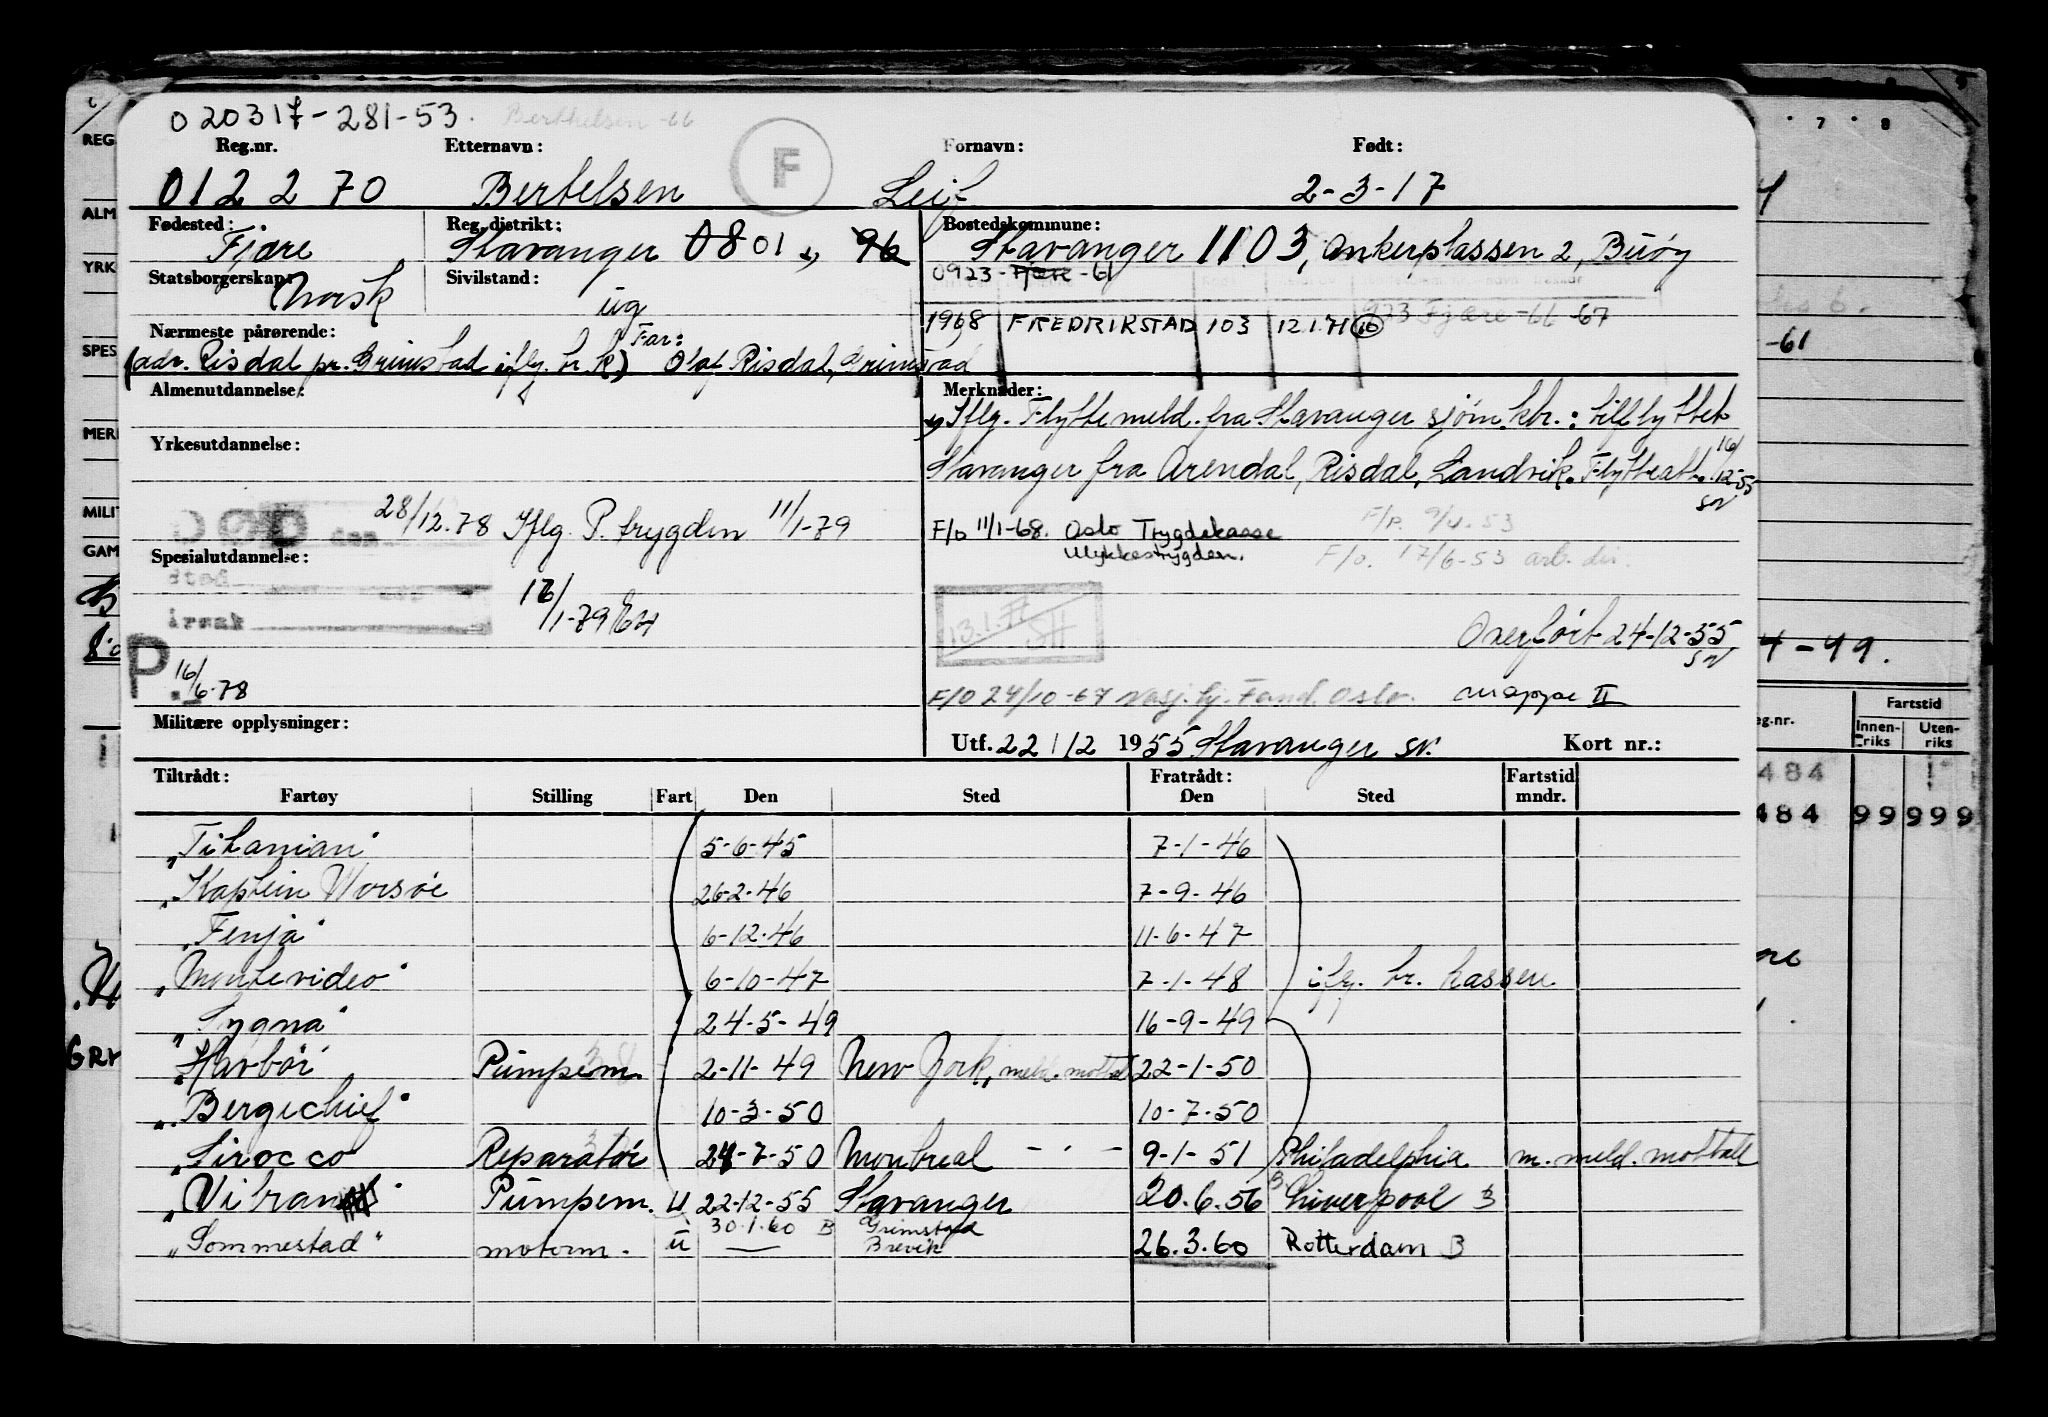 020317-281-53. Berthelsen -66
Reg.nr. Etternavn: F Fornavn: Født:
012270 Bertelsen Leif 2-3-17
Fødested: Reg. distrikt: Bostedskommune:
Fjære Stavanger 08 01 96 Stavanger 1103, Ankerplassen 2, Buøy
Statsborgerskap: Sivilstand: 0923 - Fjære - 61
Norsk ug
1968 FREDRIKSTAD 103 12.1.71 10 923 Fjære -66 -67
Nærmeste pårørende: Far:
(adr. Risdal pr. Grimstad iflg. h. k) Olaf Risdal, Grimstad
Almenutdannelse: Merknader:
Iflg. Flyttemeld. fra Stavanger sjøm.ktr.: tilflyttet
Yrkesutdannelse:
Stavanger fra Arendal, Risdal, Landvik. Flytteatt. 16/12-55 SN
DØD den 28/12-78 Iflg. P. trygden 11/1-79
F/o 11/1-68. Oslo Trygdekasse F/P. 9/4-53
Ulykkestrygden. F/o. 17/6-53 arb. dir.
Spesialutdannelse:
sted
16/1-79
årsak
13.1.71 SH
Overført 24-12-55 SN
P. 16/6-78
F/O 24/10-67 Oslo. mappe II
Militære opplysninger:
Utf. 22/12 1955 Stavanger SN. Kort nr.:
Tiltrådt: Fratrådt: Fartstid
Fartøy Stilling Fart Den Sted Den Sted mndr.
"Titanian" 5-6-45 7-1-46
"Kaptein Worsøe 26-2-46 7-9-46
"Fenja" 6-12-46 11-6-47
"Montevideo" 6-10-47 7-1-48 iflg. br. kassen
"Sygna" 24-5-49 16-9-49
"Havbør" Pumpem. 2-11-49 New York, meld. mottatt 22-1-50
"Bergechief" 10-3-50 10-7-50
"Sirocco Reparatør 24-7-50 Montreal - " - 9-1-51 Philadelphia m. meld. mottatt
"Vibran" Pumpem. U 22-12-55 Stavanger 20.6.56 Liverpool B
30.1.60 B Grimstad
"Sommestad" motorm. U Brevik 26.3.60 Rotterdam B
REG
ALM
YRK
SPES
MERK
MILIT
GAM
7 8
-61
4-49.
Fartstid
Reg.nr. Innen-riks Uten-riks
484
484 99 999